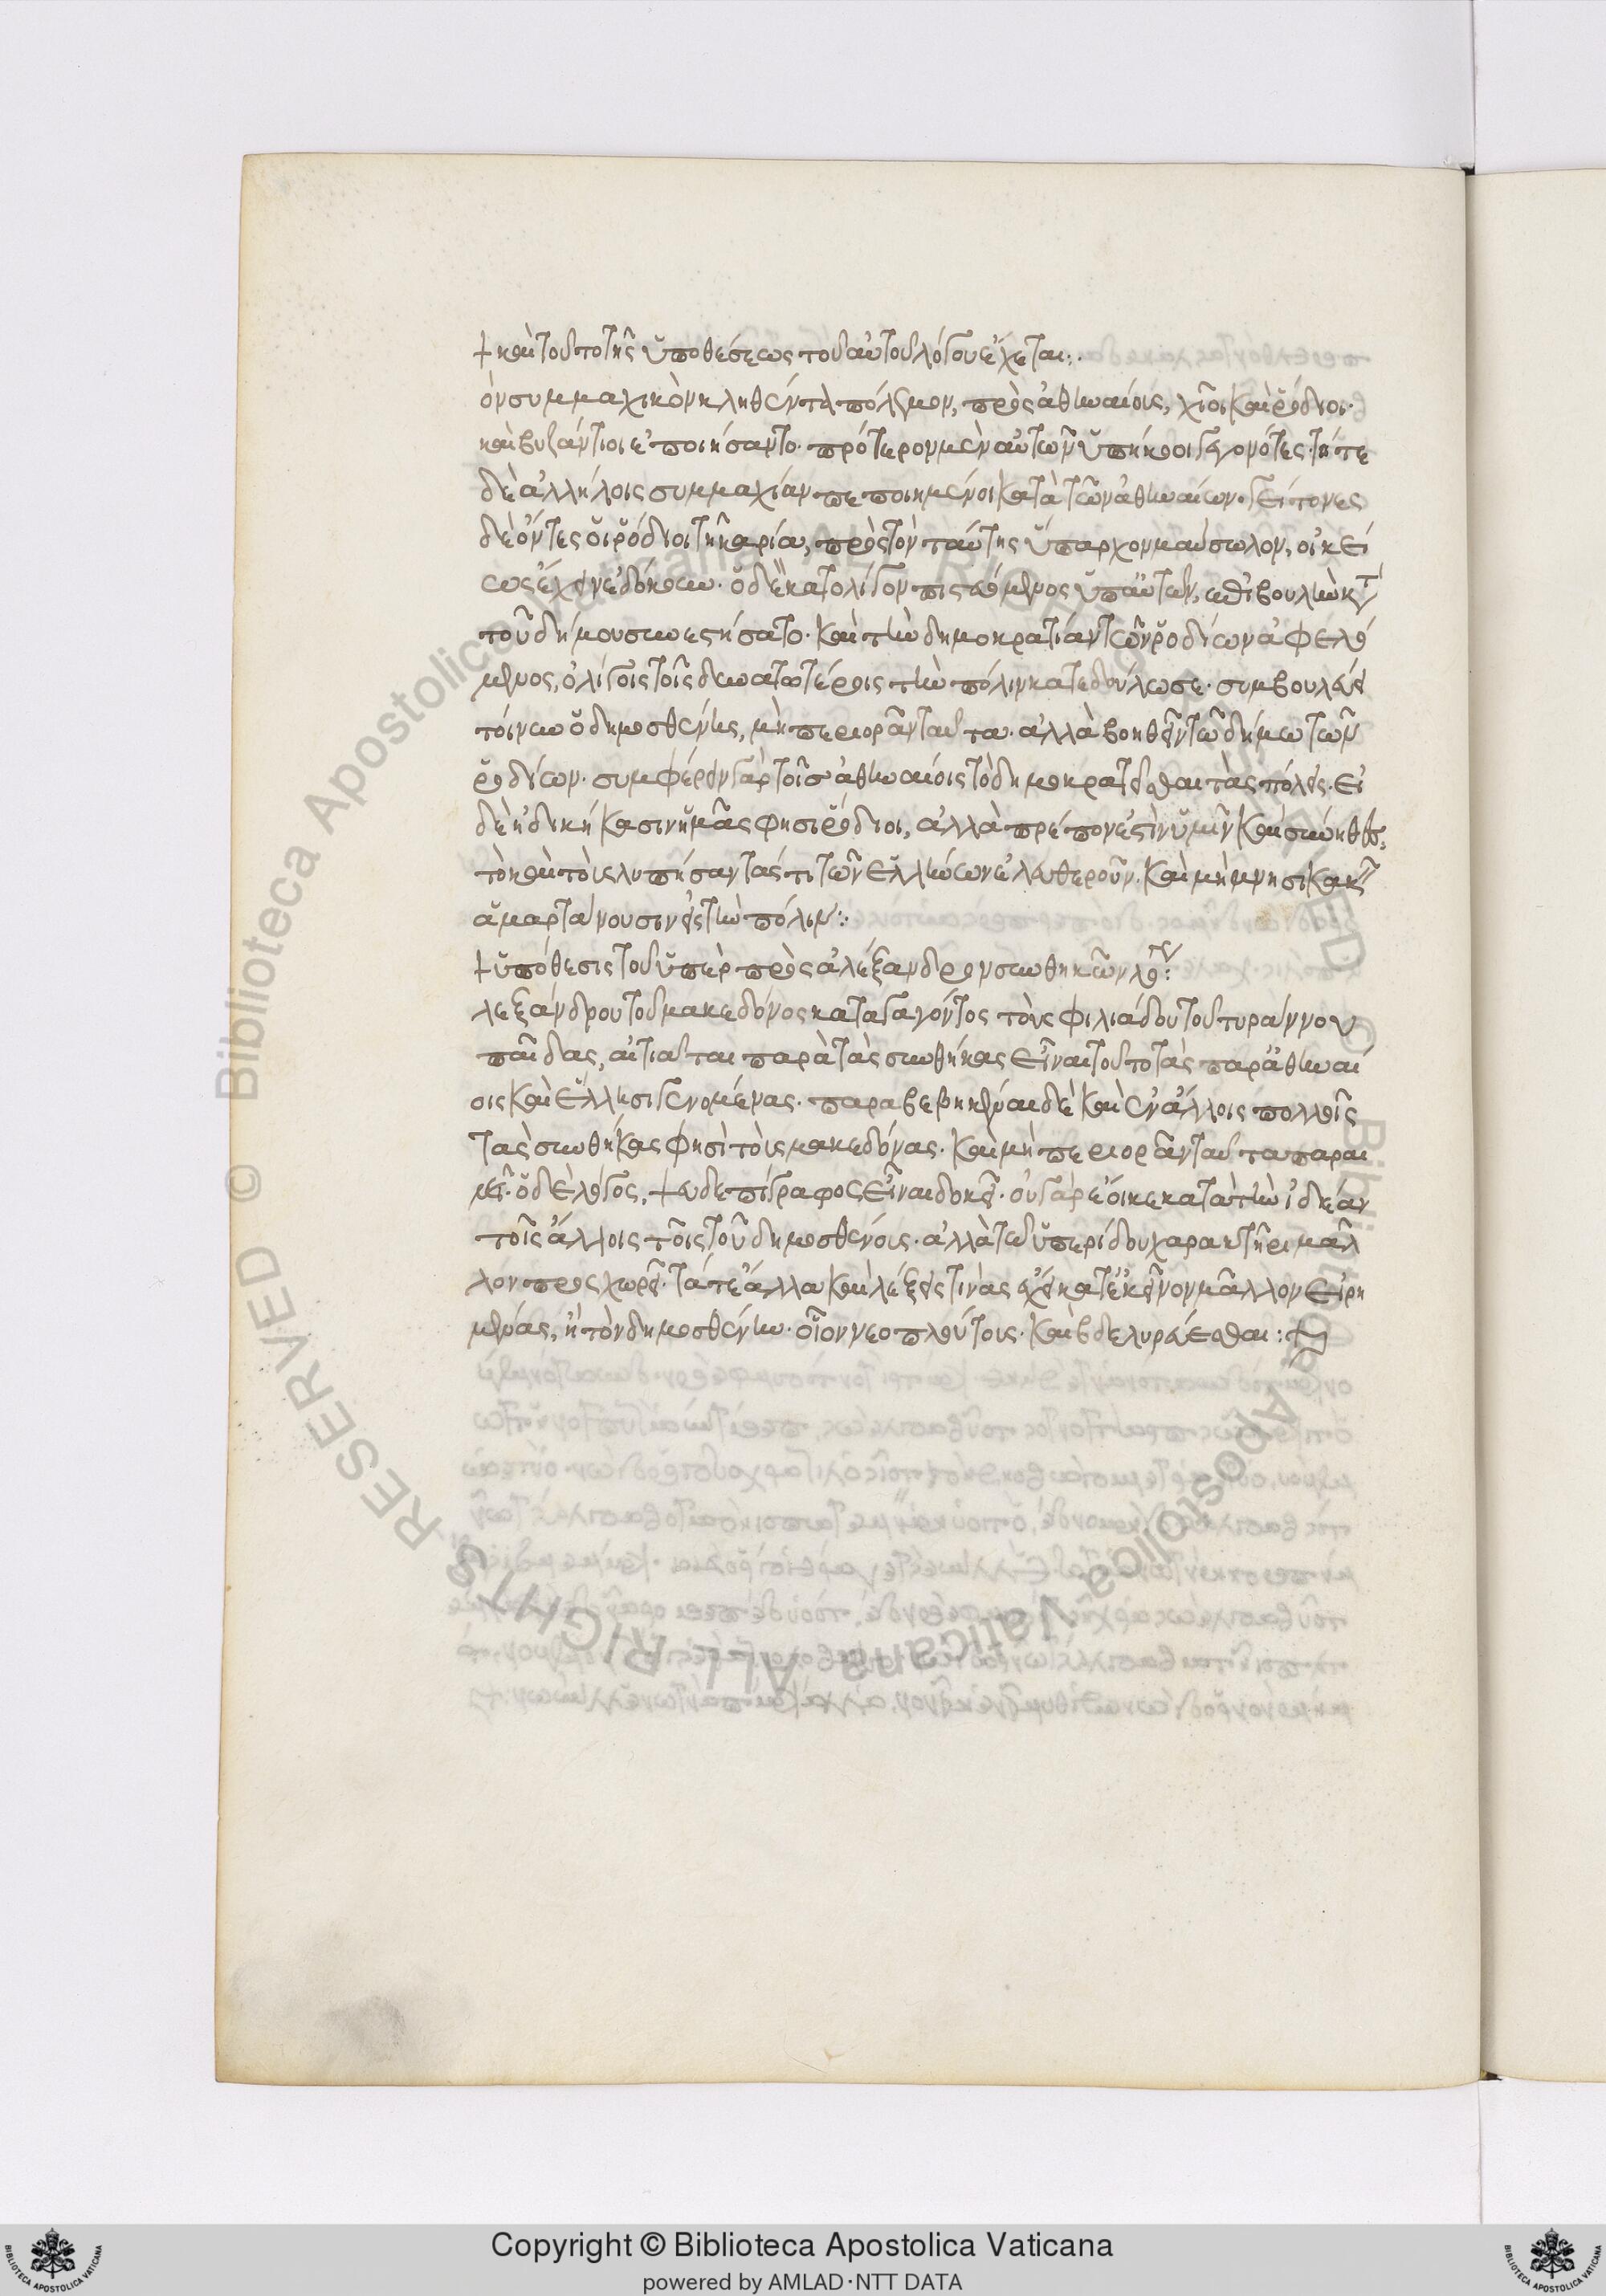 † καὶ τοῦτο τῆς ὑποθέσεως τοῦ αὐτοῦ λόγου ἔχεται:·
ὸν συμμαχικὸν κληθέντα πόλεμον, πρὸς ἀθηναίους, χῖοι καὶ ῥόδιοι·
καὶ βυζάντιοι ἐποιήσαντο· πρότερον μὲν αὐτῶν ὑπήκοοι γεγονότες· τότε
δὲ ἀλλήλοις συμμαχίαν πεποιημένοι κατὰ τῶν ἀθηναίων· γείτονες
δὲ ὄντες οἱ ῥόδιοι τῇ καρία, πρὸς τὸν ταύτης ὕπαρχον μαύσωλον, οἰκεί
ως ἔχειν ἐδόκουν· ὁ δὲ κατολίγον πιστευόμενος ὑπαὐτῶν, ἐπιβουλὴν κατ
τοῦ δήμου συνεστήσατο· καὶ τὴν δημοκρατίαν τῶν ῥοδίων ἀφελό
μενος, ὀλίγοις τοῖς δυνατωτέροις τὴν πόλιν κατεδούλωσε· συμβουλεύει
τοίνυν ὁ δημοσθένης, μὴ περιορᾶν ταῦτα· ἀλλὰ βοηθεῖν τῶ δήμω τῶν
ῥοδίων· συμφέρειν γὰρ τοῖσ ἀθηναίοις τὸ δημοκρατεῖσθαι τὰς πόλεις· εἰ
δὲ ἠδικήκασιν ἡμᾶς φησι ῥόδιοι, ἀλλὰ πρέπον ἐστὶν ὑμῖν καὶ σύνηθες
τὸ καὶ τοὺς λυπήσαντάς τι τῶν ἑλλήνων ἐλευθεροῦν· καὶ μὴ μνησικακεῖν
ἁμαρτάνουσιν εἰς τὴν πόλιν:·
† ὑπόθεσις τοῦ ὑπὲρ πρὸς ἀλέξανδρον συνθηκῶν λόγου:
λεξάνδρου τοῦ μακεδόνος καταγαγόντος τοὺς φιλιάδου τοῦ τυράννου
παῖδας, αἰτιᾶται παρὰ τὰς συνθήκας εἶναι τοῦτο τὰς παρἀθηναί
οις καὶ ἕλλησι γενομένας· παραβεβηκέναι δὲ καὶ ἐν ἄλλοις πολλοῖς
τὰς συνθήκας φησὶ τοὺς μακεδόνας· καὶ μὴ περιορᾶν ταῦτα παραι
νεῖ· ὁ δὲ λόγος, ψευδεπίγραφος εἶναι δοκεῖ· οὐ γὰρ ἔοικε κατὰ τὴν ἰδέαν
τοῖς ἄλλοις τοῖς τοῦ δημοσθένους· ἀλλὰ τῶ ὑπερίδου χαρακτῆρι μᾶλ
λον προσχωρεῖ· τά τε ἄλλα καὶ λέξεις τινὰς ἔχει κατἐκεῖνον μᾶλλον εἰρη
μένας, ἢ τὸν δημοσθένην· οἷον νεοπλούτοις· καὶ βδελυρεύεσθαι:
Copyright © Biblioteca Apostolica Vaticana
powered by AMLAD·NTT DATA